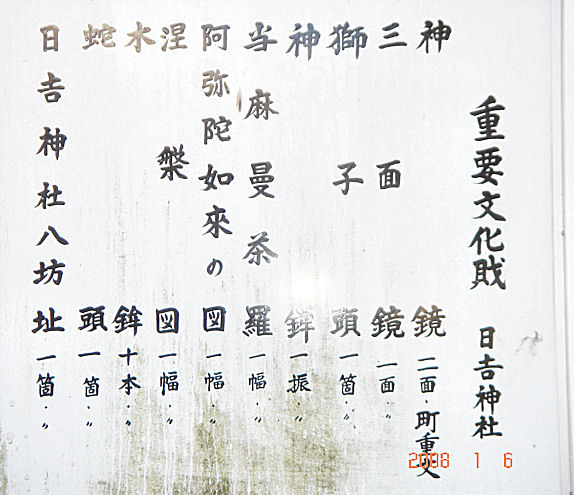 重要文化財 日吉神社
神鏡 二面・町重文
三面鏡 一面・〃
獅子頭 一箇・〃
神鉾 一振・〃
当麻曼茶羅 一幅・〃
阿弥陀如來の図 一幅・〃
涅槃図 一幅・〃
木鉾 十本・〃
蛇頭 一箇・〃
日吉神社八坊址 一箇・〃
2008 1 6